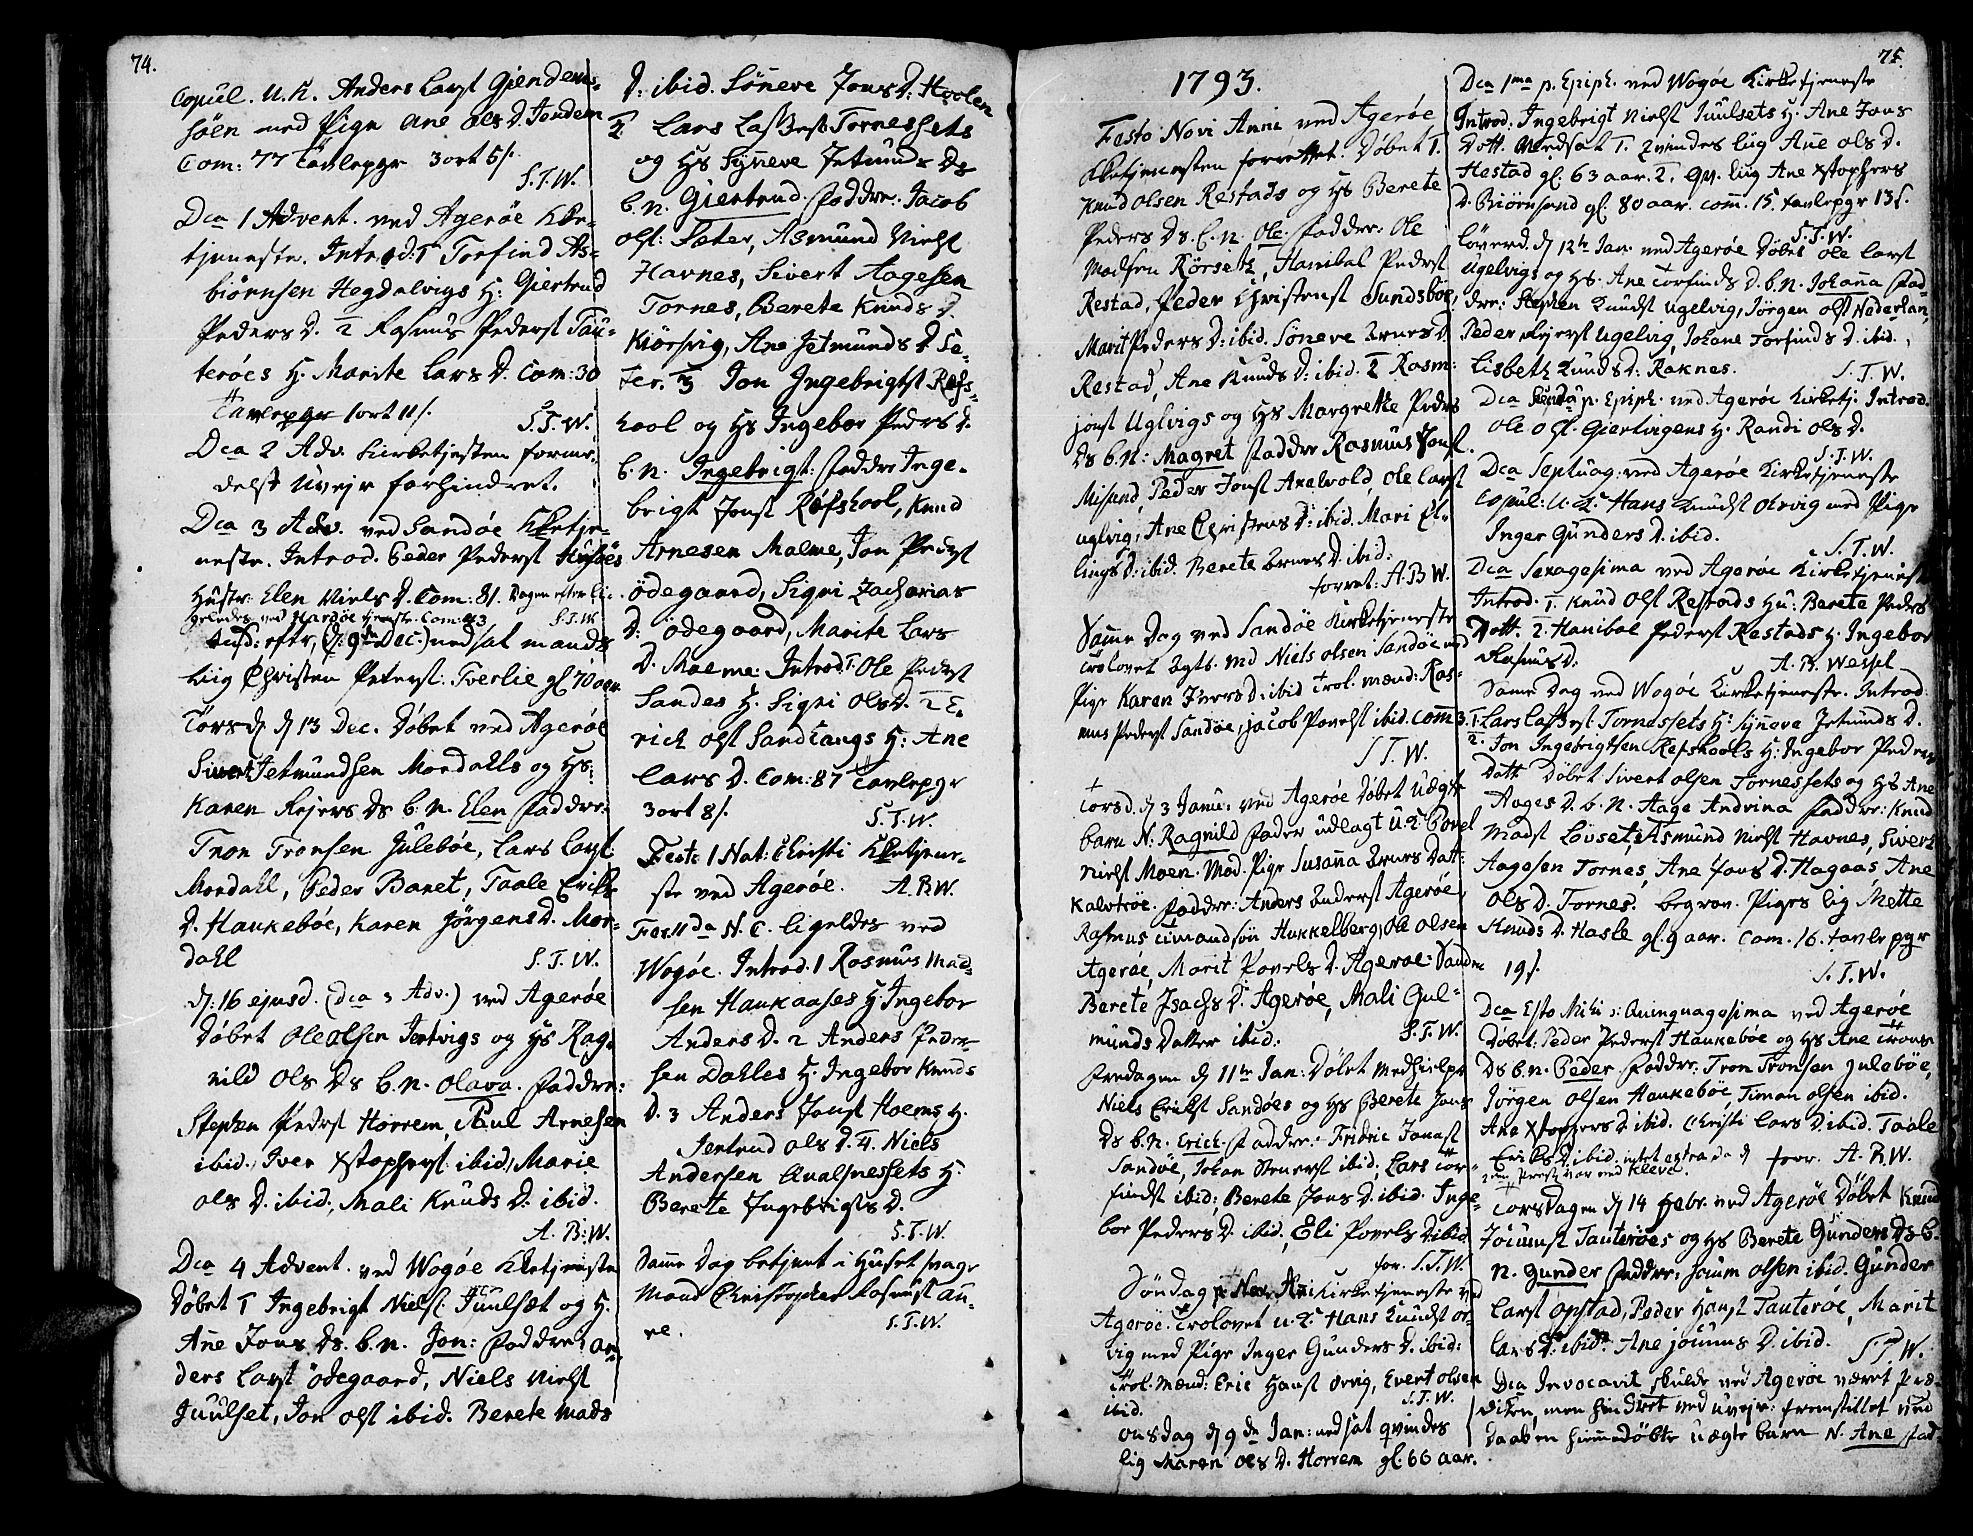 74.
Copul. U.K. Anders Larss Gjendem-
söen med Pige Ane Ols D. Jendem
Com: 77 Tavlepgr 3 ort 5 s.
S.T.W.
Dca 1 Advent. ved Agerøe Kke-
tjeneste. Introd: 1 Torfind As-
biörnsen Hegdalvigs H: Giertrud
Peders D. 2 Rasmus Peders Tau-
terøes H. Marite Lars D. Com: 30
Tavlepgr 1 ort 11 s.
S.T.W.
Dca 2 Adv. Kirketjesten forme-
delst Uvejr forhindret.
Dca 3 Adv. ved Sandøe Kketje-
neste. Introd. Peder Peders Husøes
Hustr: Elen Niels D. Com: 81. Dagen efter li-
geledes ved Hardøe tjeneste. Com: 43 S.T.W
eftr, (d: 9de Dec:) nedsat mands
Liig Christen Peters: Tverlie gl 70 aar.
Torsd. d 13 Dec. Döbet ved Agerøe
Siver Jetmundsen Mordahls og Hs:
Karen Rejers Ds b.n. Elen Faddre:
Tron Tronsen Julebøe, Lars Lars
Mordahl, Peder Banet, Taale Eriks
D. Haukebøe, Karen Jørgens D. Mor-
dahl
S.T.W.
d: 16 ejusd. (Dca 3 Adv.) ved Agerøe
Döbet Ole Olsen Jertvigs og Hs Rag-
nild Ols Ds b.n. Olava. Faddre:
Stephen Peders Horrem, Paul Arnesen
ibid., Iver Xstophers ibid, Marie
Ols D. ibid., Mali Knuds D. ibid.
A.B.W.
Dca 4 Advent. ved Wogøe Kketjeneste
Döbet 1 Ingebrigt Niels Juulsæt og H.
Ane Jons Ds. b.n. Jon: Faddre: An-
ders Lars Ödegaard, Niels Niels
Juulset, Jon Ols ibid. Berete Mads
D. ibid. Söneve Jons D. Hoolen
2. Lars Lasses Tornessets
og Hs Syneve Jetmunds Ds
b.n. Giertrud. Faddre: Jacob
Ols: Sæter, Asmund Niels
Havnes, Sivert Aagesen
Tornes, Berete Knuds D.
Kiörsvig, Ane Jetmunds D. Sæ-
ter. 3 Jon Ingebrigts Refs-
hool og Hs Ingebor Peders D.
b.n. Ingebrigt: Faddre Inge-
brigt Jons Refshool, Knud
Arnesen Malme, Jon Peders
ödegaard, Sigri Zacharias
D. ödegaard, Marite Lars
D. Malme: Introd. 1. Ole Peders
Sandes H. Sigri Ols D. 2 E-
rich Ols Sandtangs H: Ane
Lars D. Com: 87 Tavlepgr
3 ort 8 s.
S.T.W.
Festo 1 Nat: Christi Kketjene-
ste ved Agerøe. A.B.W.
Fer. 11da N.C. ligeledes ved
Wogøe. Introd. 1 Rasmus Mad-
sen Haukaases H Ingebor
Anders D. 2 Anders Peder-
sen Dahles H. Ingebor Knuds
D. 3 Anders Jons Hoems H.
Jertrud Ols D. 4. Niels
Andersen Qualsnessets H.
Berete Ingebrigts D.
S.T.W.
Same Dag betjent i Huset svage
Mand Christopher Rasmus Au-
re.
S.T.W.
1793.
Festo Novi Anni ved Agerøe
Kketjenesten forrettet. Døbet 1.
Knud Olsen Restads og Hs Berete
Peders Ds. b.n. Ole Faddre: Ole
Madsen Rörseth, Hanibal Peders
Restad, Peder Christens Sundsböe,
Marit Peders D: ibid. Söneve Iners D.
Restad, Ane Knuds D: ibid. 2 Rasm:
Jons Uglvigs og Hs Margrethe Peders
Ds b.n: Magret Faddre Rasmus Jons
Misund, Peder Jons Axelvold, Ole Lars
Uglvig, Ane Christens D: ibid. Mari El-
lings D: ibid. Berete Iners D. ibid:
forret: A.B.W.
Samme Dag ved Sandöe Kirketjeneste
Trolovet Egtb. md Niels Olsen Sandöe md
Pige Karen Ivers D: ibid Trol. mænd: Ras-
mus Peders Sandöe, Jacob Povels ibid. Com 3.
S.T.W.
Torsd. d 3 Janu: ved Agerøe Döbet Uægte
barn N. Ragnild Fader udlagt U.K. Povel
Niels Moen. Mod. Pige Susana Iners Datt:
Kalvtröe. Faddre: Anders Anders Agerøe,
Rasmus Timandsön Hukkelberg, Ole Olsen
Agerøe, Marit Povels D. Agerøe Sandn
Berete Isachs D. Agerøe, Mali Gul-
munds Datter ibid:
S.T.W.
Fredagen d 11te Jan: Döbet Medhielper
Niels Eriks Sandöes og Hs Berete Jons
Ds b.n. Erich Faddre: Fridric Jonas
Sandöe, Johan Steners ibid; Lars Tor-
finds ibid; Berete Jons D. ibid. Inge-
bor Peders D. ibid., Eli Povels D ibid.
for. S.T.W.
Söndag p. Nov. An: Kirketjeneste ved
Agerøe. Trolovet U.K. Hans Knuds Or-
vig med Pige Inger Gunders D. ibid:
Trol. Mænd: Eric Hans Orvig, Evert Olsen
ibid.
S.T.W.
Onsdag d 9de Jan: nedsat qvindes
liig Maren Ols D. Horrem gl: 66 aar.
75.
Dca 1ma p. Epiph. ved Wogøe Kirketjeneste
Introd: Ingebrigt Niels Juulsets H. Ane Jons
Dott. Nedsat 1. qvindes liig Ane Ols D.
Hestad gl. 63 aar. 2. Qv. liig Ane Xstophers
D. Biörnsund gl. 80 aar. Com. 15. tavlepgr 13 s.
S.T.W.
Löverd. d 12te Jan. ved Agerøe Döbet Ole Lars
Ugelvigs og Hs. Ane Torfinds D. b.n. Johana Fad-
dre: Stephen Knuds Ugelvig, Jörgen Ols Nederlan,
Peder Rejers Ugelvig, Johane Torfinds D. ibid.,
Lisbeth Knuds D. Raknes. S.T.W.
Dca p. Epiph. ved Agerøe Kirketj. Introd.
Ole Ols Giertvigens H. Randi Ols D.
S.T.W.
Dca Septuag. ved Agerøe Kirketjeneste
Copul: U.K. Hans Knuds Orvig med Pige
Inger Gunders D. ibid.
S.T.W.
Dca Sexagesima ved Agerøe Kirketjeneste
Introd. 1. Knud Ols Restads Hu: Berete Peders
Dott. 2. Hanibal Peders Restads H. Ingebor
Rasmus D.
A.B. Wessel
Same Dag ved Wogøe Kirketjeneste. Introd:
1. Lars Lasses Tornessets H: Synova Jetmunds D.
2. Jon Ingebrigtsen Refshools H: Ingebor Peders
Datt Döbet Sivert Olsen Tornessets og Hs Ane
Aages D. b.n. Aage Andrina Faddre: Knud
Mads Lövset, Asmund Niels Havnes, Sivert
Aagesen Tornes, Ane Jons D. Hagaas, Ane
Ols D. Tornes. begrav. Piges lig Mette
Knuds D. Hasle gl. 9 aar. Com. 16. tavlepgr
19 s.
S.T.W.
Dca Esto Mihi s: Quinquagesima ved Agerøe
Döbet: Peder Peders Haukeböe og Hs Ane Trons
Ds b.n. Peder. Faddre: Tron Tronsen Juleböe,
Jörgen Olsen Haukeböe, Timan Olsen ibid.
Ane Xstophers D ibid. Christi Lars D. ibid. Taale
Eriks D. ibid. for. A.B.W.
Torsdagen d 14 Febr. ved Agerøe Döbet Knud
Joiums Tauteröes og Hs Berete Gunders Ds b.
n. Gunder Faddre: Joium Olsen ibid. Gunder
Lars Opstad, Peder Hans Tauteröe, Marit
Lars D. ibid. Ane Joiums D. ibid.
S.T.W.
Dca Invocavit skulde ved Agerøe været Præ-
diken, men hindret ved uvejr: fremstillet ved
Daab en hiemmedöbte uægte barn N. Ane Fad-